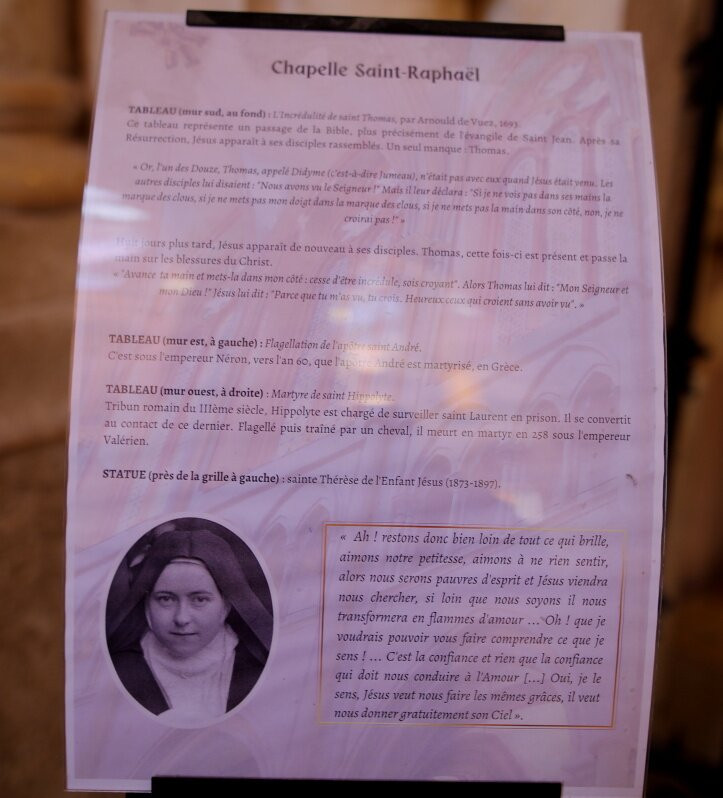 Chapelle Saint-Raphaël
TABLEAU (mur sud, au fond) : L'Incrédulité de saint Thomas, par Arnould de Vuez, 1693.
Ce tableau représente un passage de la Bible, plus précisément de l'évangile de Saint Jean. Après sa
Résurrection, Jésus apparaît à ses disciples rassemblés. Un seul manque : Thomas.
« Or, l'un des Douze, Thomas, appelé Didyme (c'est-à-dire Jumeau), n'était pas avec eux quand Jésus était venu. Les
autres disciples lui disaient : "Nous avons vu le Seigneur !" Mais il leur déclara : "Si je ne vois pas dans ses mains la
marque des clous, si je ne mets pas mon doigt dans la marque des clous, si je ne mets pas la main dans son côté, non, je ne
croirai pas !" »
Huit jours plus tard, Jésus apparaît de nouveau à ses disciples. Thomas, cette fois-ci est présent et passe la
main sur les blessures du Christ.
« "Avance ta main et mets-la dans mon côté : cesse d'être incrédule, sois croyant". Alors Thomas lui dit : "Mon Seigneur et
mon Dieu !" Jésus lui dit : "Parce que tu m'as vu, tu crois. Heureux ceux qui croient sans avoir vu". »
TABLEAU (mur est, à gauche) : Flagellation de l'apôtre saint André.
C'est sous l'empereur Néron, vers l'an 60, que l'apôtre André est martyrisé, en Grèce.
TABLEAU (mur ouest, à droite) : Martyre de saint Hippolyte.
Tribun romain du IIIème siècle, Hippolyte est chargé de surveiller saint Laurent en prison. Il se convertit
au contact de ce dernier. Flagellé puis traîné par un cheval, il meurt en martyr en 258 sous l'empereur
Valérien.
STATUE (près de la grille à gauche) : sainte Thérèse de l'Enfant Jésus (1873-1897).
« Ah ! restons donc bien loin de tout ce qui brille,
aimons notre petitesse, aimons à ne rien sentir,
alors nous serons pauvres d'esprit et Jésus viendra
nous chercher, si loin que nous soyons il nous
transformera en flammes d'amour ... Oh ! que je
voudrais pouvoir vous faire comprendre ce que je
sens ! ... C'est la confiance et rien que la confiance
qui doit nous conduire à l'Amour [...] Oui, je le
sens, Jésus veut nous faire les mêmes grâces, il veut
nous donner gratuitement son Ciel ».